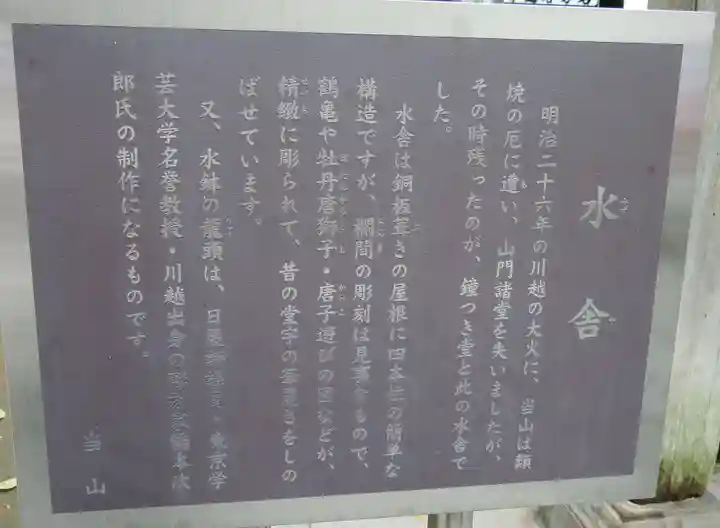 水舎
明治二十六年の川越の大火に、当山は類
焼の厄に遭い、山門諸堂を失いましたが、
その時残ったのが、鐘つき堂と此の水舎で
した。
水舎は銅板葺きの屋根に四本柱の簡単な
構造ですが、欄間の彫刻は見事なもので、
鶴亀や牡丹唐獅子・唐子遊びの図などが、
精緻に彫られて、昔の堂宇の荘厳さをしの
ばせています。
又、水鉢の龍頭は、日展 東京学
芸大学名誉教授・川越出身の 橋本次
郎氏の制作になるものです。
当山